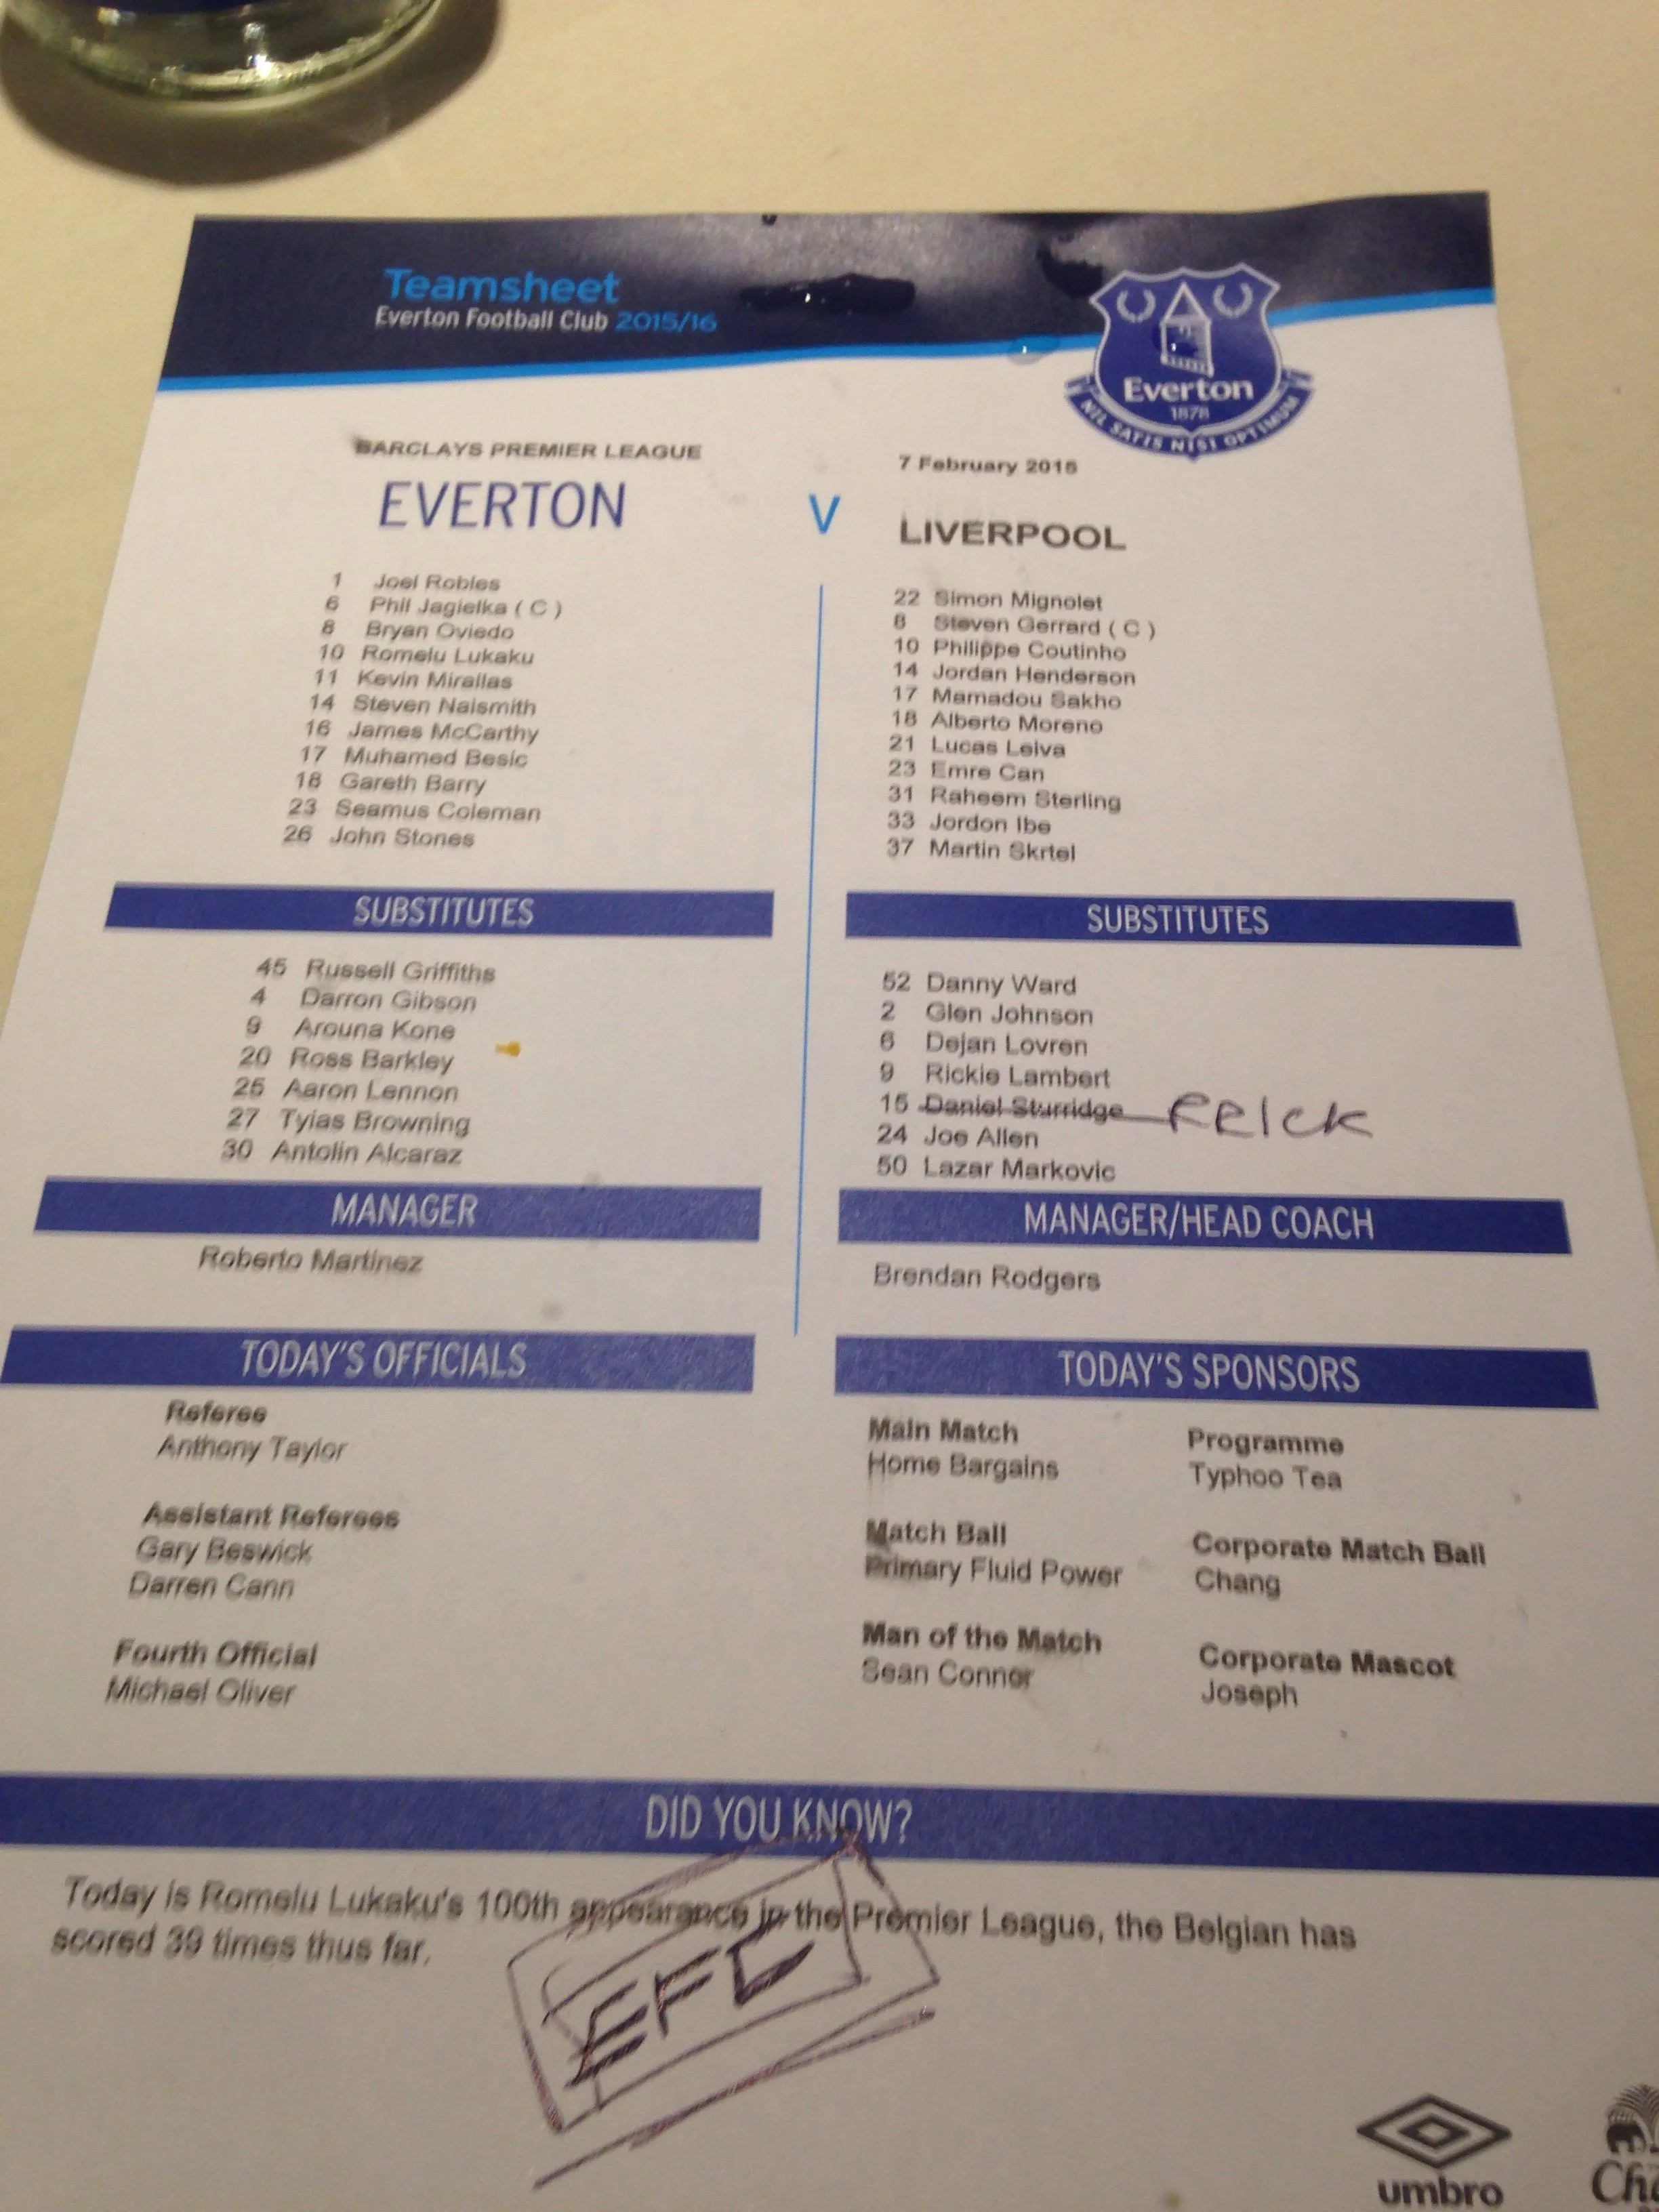 Teamsheet
Everton Football Club 2015/16
Everton
1878
NIL SATIS NISI OPTIMUM
BARCLAYS PREMIER LEAGUE
7 February 2015
EVERTON V LIVERPOOL
1 Joel Robles
6 Phil Jagielka ( C )
8 Bryan Oviedo
10 Romelu Lukaku
11 Kevin Mirallas
14 Steven Naismith
16 James McCarthy
17 Muhamed Besic
18 Gareth Barry
23 Seamus Coleman
26 John Stones
22 Simon Mignolet
8 Steven Gerrard ( C )
10 Philippe Coutinho
14 Jordan Henderson
17 Mamadou Sakho
18 Alberto Moreno
21 Lucas Leiva
23 Emre Can
31 Raheem Sterling
33 Jordon Ibe
37 Martin Skrtel
SUBSTITUTES
45 Russell Griffiths
4 Darron Gibson
9 Arouna Kone
20 Ross Barkley
25 Aaron Lennon
27 Tyias Browning
30 Antolin Alcaraz
SUBSTITUTES
52 Danny Ward
2 Glen Johnson
6 Dejan Lovren
9 Rickie Lambert
15 Daniel Sturridge PRICK
24 Joe Allen
50 Lazar Markovic
MANAGER
Roberto Martinez
MANAGER/HEAD COACH
Brendan Rodgers
TODAY'S OFFICIALS
Referee
Anthony Taylor
Assistant Referees
Gary Beswick
Darren Cann
Fourth Official
Michael Oliver
TODAY'S SPONSORS
Main Match
Home Bargains
Programme
Typhoo Tea
Match Ball
Primary Fluid Power
Corporate Match Ball
Chang
Man of the Match
Sean Connor
Corporate Mascot
Joseph
DID YOU KNOW?
Today is Romelu Lukaku's 100th appearance in the Premier League, the Belgian has
scored 39 times thus far.
EFC
umbro